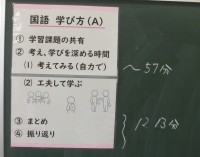 国語 学び方(A)
① 学習課題の共有
② 考え、学びを深める時間
(1) 考えてみる(自力で)
〜57分
(2) 工夫して学ぶ
③ まとめ
④ 振り返り
12、13分